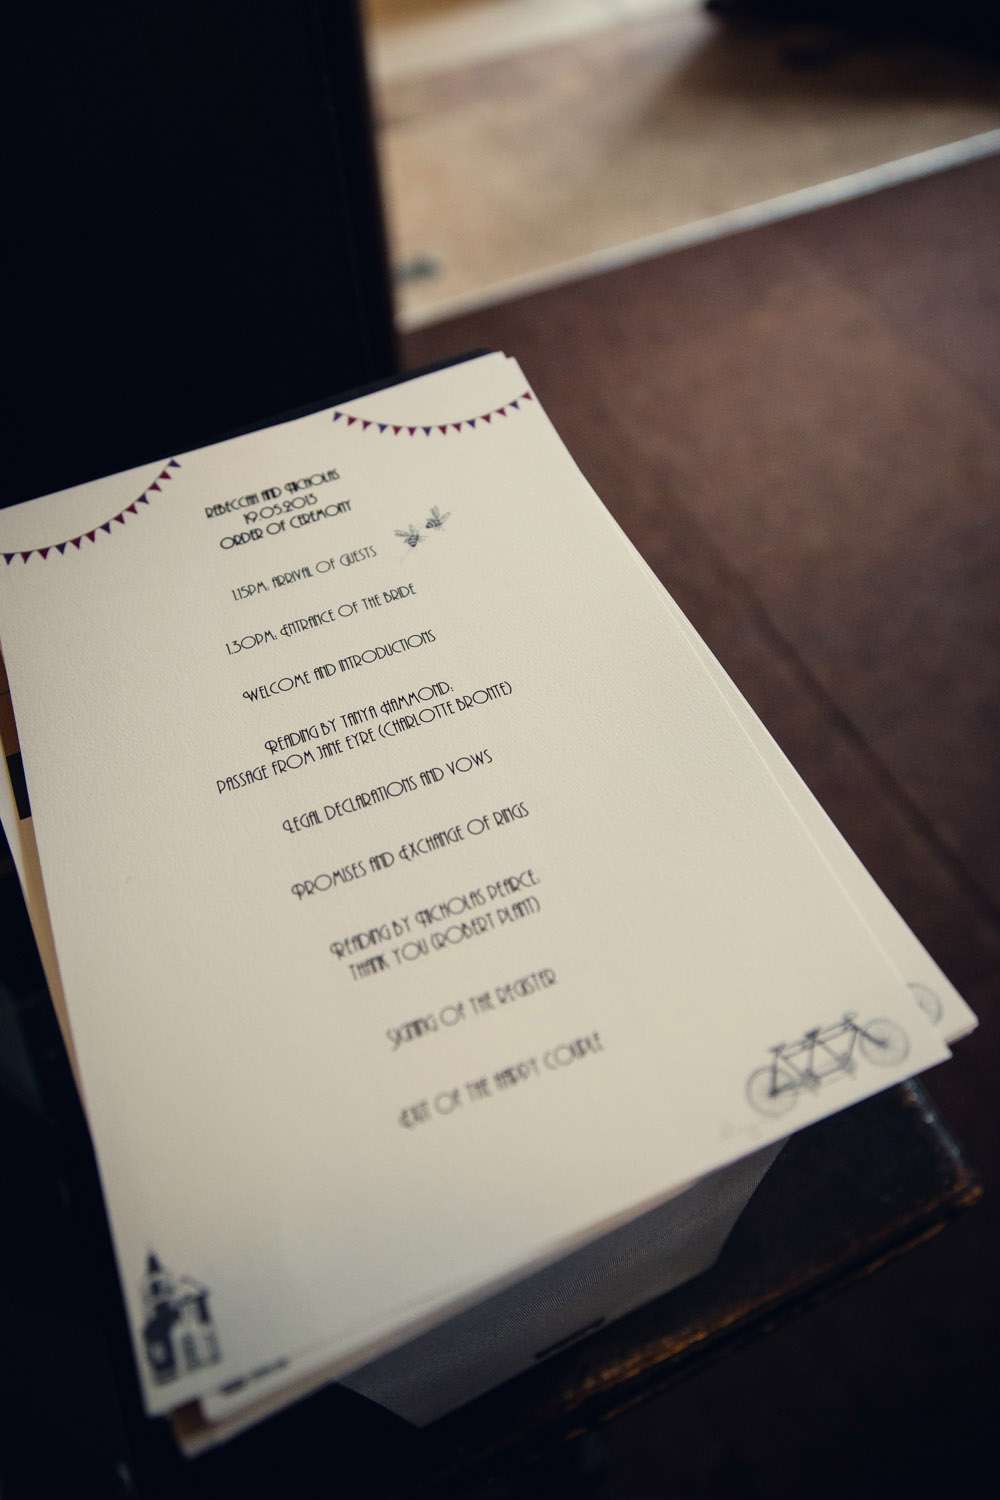 Rebeccah and Nicholas
19.05.2013
Order of Ceremony
1.15pm, Arrival of Guests
1.30pm: Entrance of the Bride
Welcome and introductions
Reading by Tanya Hammond:
Passage from Jane Eyre (Charlotte Bronte)
Legal declarations and vows
Promises and Exchange of rings
Reading by Nicholas Pearce,
Thank You (Robert Plant)
Signing of the Register
Exit of the Happy Couple